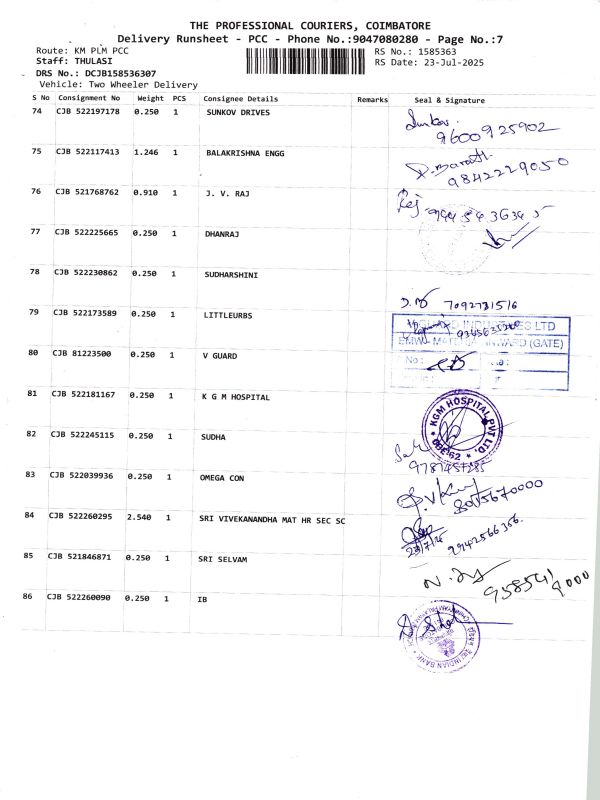 THE PROFESSIONAL COURIERS, COIMBATORE
Delivery Runsheet - PCC - Phone No.:9047080280 - Page No.:7
Route: KM PLM PCC
RS No.: 1585363
Staff: THULASI
RS Date: 23-Jul-2025
DRS No.: DCJB158536307
Vehicle: Two Wheeler Delivery
S No Consignment No Weight PCS Consignee Details Remarks Seal & Signature
74 CJB 522197178 0.250 1 SUNKOV DRIVES
9600925902
75 CJB 522117413 1.246 1 BALAKRISHNA ENGG
9842229050
76 CJB 521768762 0.910 1 J. V. RAJ
77 CJB 522225665 0.250 1 DHANRAJ
78 CJB 522230862 0.250 1 SUDHARSHINI
7092731516
79 CJB 522173589 0.250 1 LITTLEURBS
LTD
INWARD (GATE)
No :
80 CJB 81223500 0.250 1 V GUARD
81 CJB 522181167 0.250 1 K G M HOSPITAL
KGM HOSPITAL PVT LTD.
82 CJB 522245115 0.250 1 SUDHA
83 CJB 522039936 0.250 1 OMEGA CON
8015670000
84 CJB 522260295 2.540 1 SRI VIVEKANANDHA MAT HR SEC SC
85 CJB 521846871 0.250 1 SRI SELVAM
86 CJB 522260090 0.250 1 IB
INDIAN BANK